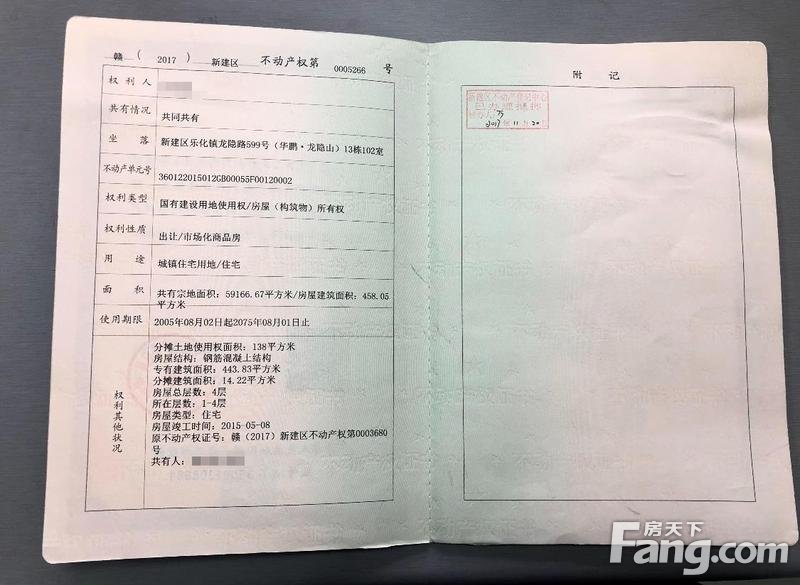 赣 ( 2017 ) 新建区 不动产权第 0005266 号
权利人
共有情况 共同共有
坐落 新建区乐化镇龙隐路599号(华鹏·龙隐山)13栋102室
不动产单元号 360122015012GB00055F00120002
权利类型 国有建设用地使用权/房屋(构筑物)所有权
权利性质 出让/市场化商品房
用途 城镇住宅用地/住宅
面积 共有宗地面积:59166.67平方米/房屋建筑面积:458.05
平方米
使用期限 2005年08月02日起2075年08月01日止
权利其他状况
分摊土地使用权面积:138平方米
房屋结构:钢筋混凝土结构
专有建筑面积:443.83平方米
分摊建筑面积:14.22平方米
房屋总层数:4层
所在层数:1-4层
房屋类型:住宅
房屋竣工时间:2015-05-08
原不动产权证号:赣(2017)新建区不动产权第0003680
号
共有人:
附记
新建区不动产登记中心
已办理抵押
2017年11月20
房天下
Fang.com